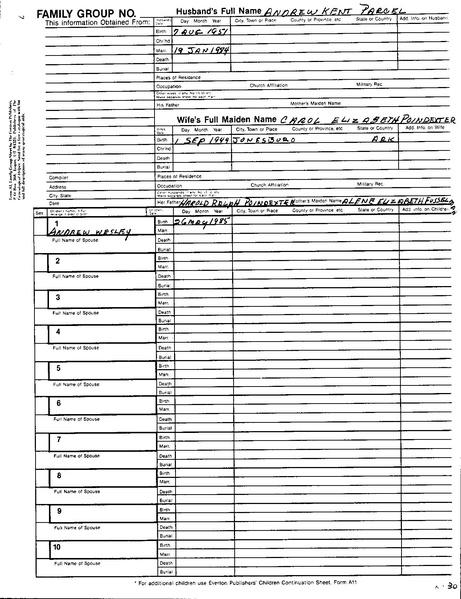 FAMILY GROUP NO.
This Information Obtained From:
Husband's Full Name ANDREW KENT PARCEL
Husband's Data Day Month Year City, Town or Place County or Province, etc. State or Country Add. Info. on Husband
Birth 7 AUG 1951
Chr'nd
Marr. 19 JAN 1984
Death
Burial
Places of Residence
Occupation Church Affiliation Military Rec.
His Father Mother's Maiden Name
Wife's Full Maiden Name CAROL ELIZABETH POINDEXTER
Day Month Year City, Town or Place County or Province, etc. State or Country Add. Info. on Wife
Birth 1 SEP 1949 JONESBORO ARK
Chr'nd
Death
Burial
Compiler Places of Residence
Address Occupation Church Affiliation Military Rec.
City, State
Date Her Father HAROLD RALPH POINDEXTER Mother's Maiden Name ALENE ELIZABETH FUSSELL
Sex Day Month Year City, Town or Place County or Province, etc. State or Country Add. Info. on Children
1 Birth 26 MAY 1985
ANDREW WESLEY Marr.
Full Name of Spouse Death
Burial
2 Birth
Marr.
Full Name of Spouse Death
Burial
3 Birth
Marr.
Full Name of Spouse Death
Burial
4 Birth
Marr.
Full Name of Spouse Death
Burial
5 Birth
Marr.
Full Name of Spouse Death
Burial
6 Birth
Marr.
Full Name of Spouse Death
Burial
7 Birth
Marr.
Full Name of Spouse Death
Burial
8 Birth
Marr.
Full Name of Spouse Death
Burial
9 Birth
Marr.
Full Name of Spouse Death
Burial
10 Birth
Marr.
Full Name of Spouse Death
Burial
* For additional children use Everton Publishers' Children Continuation Sheet, Form A11
30